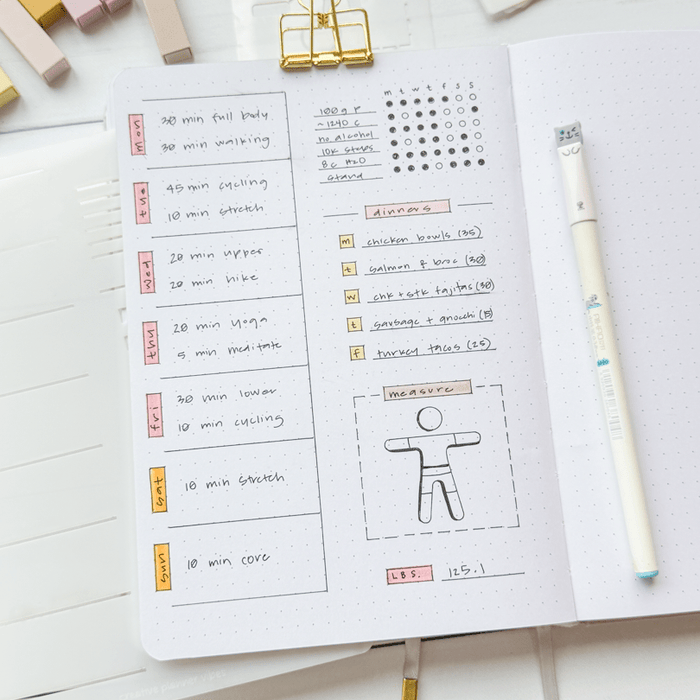 mon
30 min full body
30 min walking
tue
45 min cycling
10 min stretch
wed
20 min upper
20 min hike
thu
20 min yoga
5 min meditate
fri
30 min lower
10 min cycling
sat
10 min stretch
sun
10 min core
m t w t f s s
100g P
~1240 c
no alcohol
10K steps
8c H2O
stand
dinners
m chicken bowls (35)
t salmon & broc (30)
w chk + stk fajitas (30)
t sausage + gnocchi (15)
f turkey tacos (25)
measure
LBS. 125.1